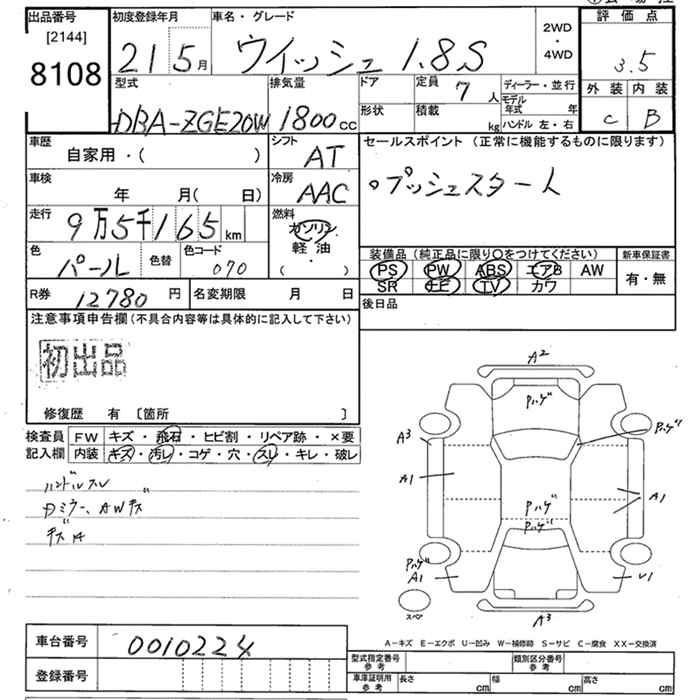 出品番号 初度登録年月 車名・グレード 評価点
[2144]
8108
21 5月 ウイッシュ 1.8S
2WD
・
4WD
3.5
外装 内装
C B
型式 排気量 ドア 定員 7人 ディーラー・並行
DBA-ZGE20W 1800cc
形状 積載 kg
モデル年式 年
ハンドル 左・右
車歴 シフト セールスポイント(正常に機能するものに限ります)
自家用・( ) AT
車検 冷房
年 月(日) AAC
。プッシュスタート
走行 燃料
9万5千165km ガソリン
軽油
( ・ )
色 色替 色コード
パール 070
装備品(純正品に限り○をつけてください) 新車保証書
PS PW ABS エアB AW 有・無
SR ナビ TV カワ
R券 12780円 名変期限 月 日
後日品
注意事項申告欄(不具合内容等は具体的に記入して下さい)
初出品
修復歴 有 [箇所 ]
検査員 FW キズ・飛石・ヒビ割・リペア跡・×要
記入欄 内装 キズ・汚レ・コゲ・穴・スレ・キレ・破レ
ハンドルスレ
Dミラー、AWキズ
A2
Pハゲ
A3 Pハゲ
A1 A1
Pハゲ
Pハゲ
Pハゲ
A1 U1
スペア A3
A-キズ E-エクボ U-凹み W-補修跡 S-サビ C-腐食 XX-交換済
車台番号 0010224
型式指定番号 参考 類別区分番号 参考
登録番号 車庫証明用 参考 長さ cm 幅 cm 高さ cm